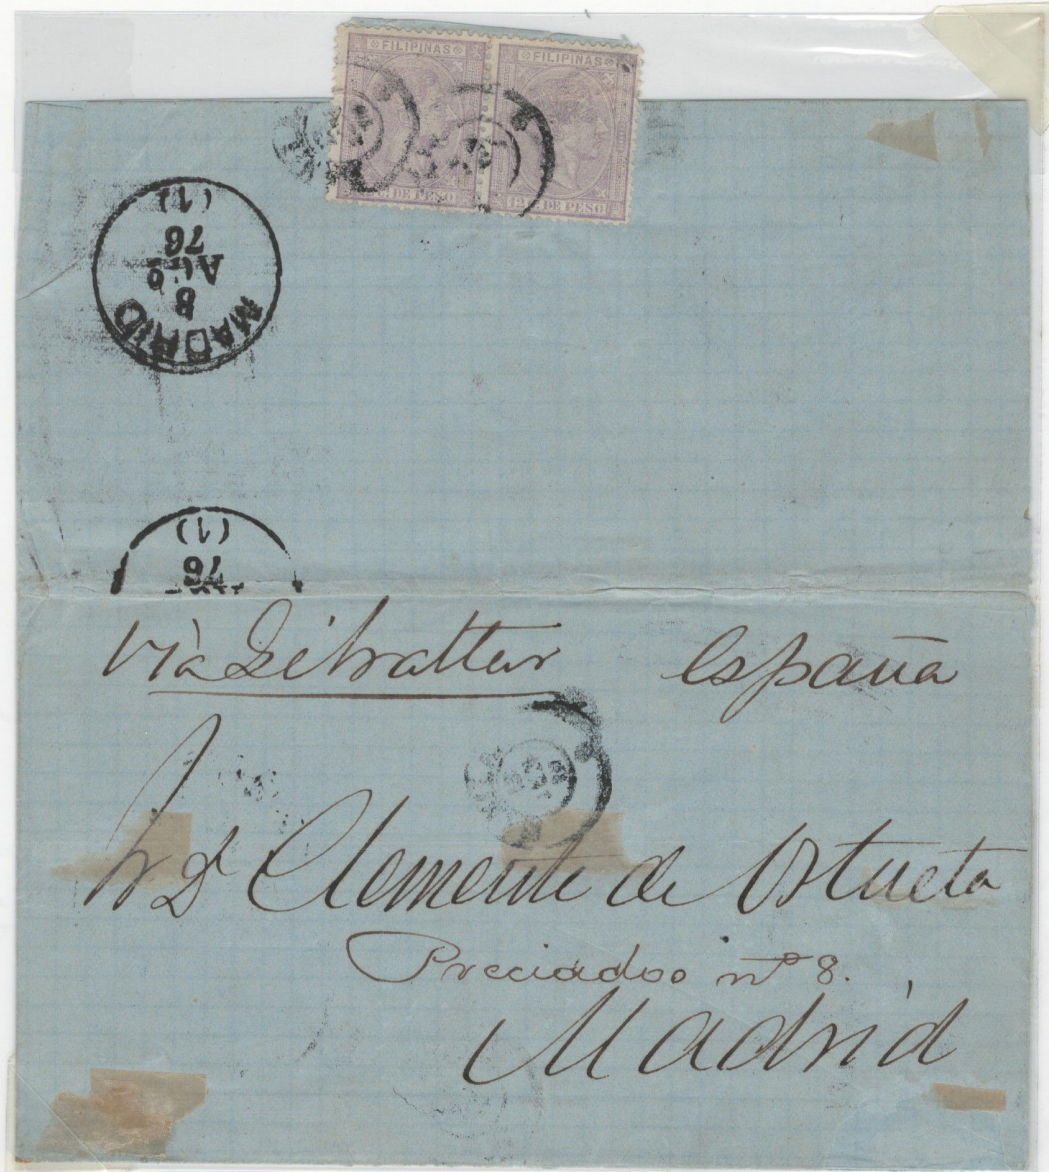 FILIPINAS FILIPINAS
DE PESO 12 C. DE PESO
MADRID
8
AGO
76
(1)
76
(1)
Via Gibraltar España
Sr Dn Clemente de Ostueta
Preciados nº 8.
Madrid